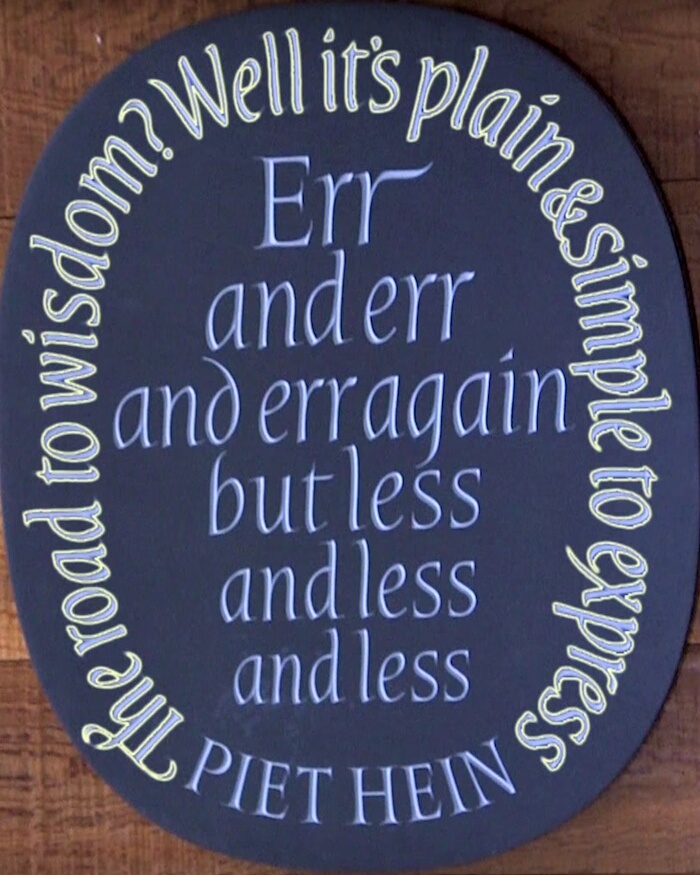 The road to wisdom? Well it's plain & simple to express
Err
and err
and err again
but less
and less
and less
PIET HEIN